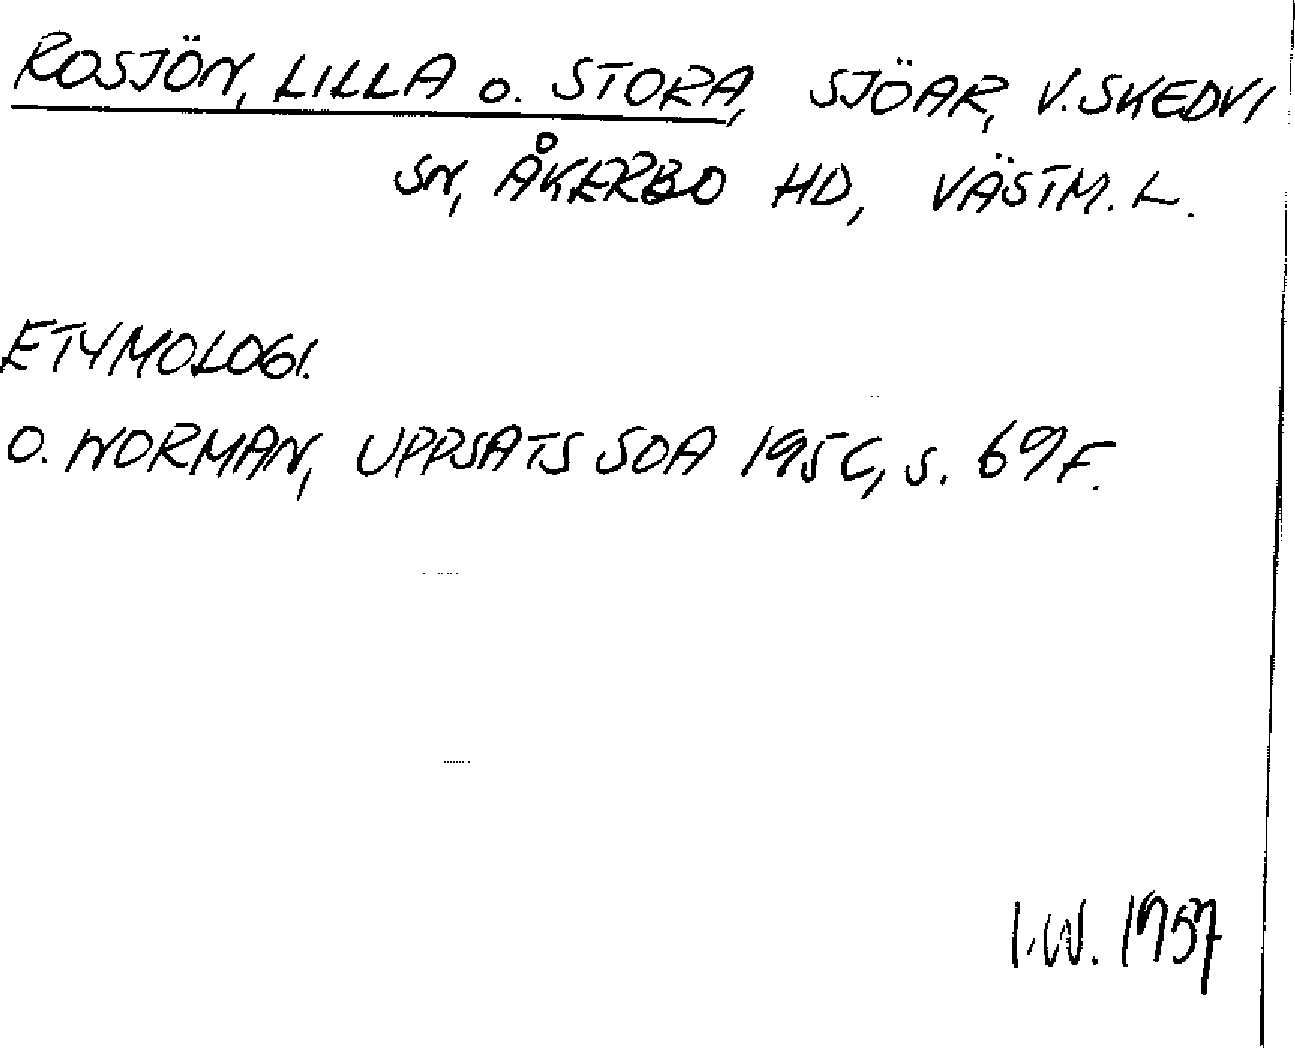 ROSJÖN, LILLA o. STORA, SJÖAR, V. SKEDVI
SN, ÅKERBO HD, VÄSTM. L.
ETYMOLOGI.
O. NORMAN, UPPSATS SOA 1956, s. 69 F.
I.W. 1957